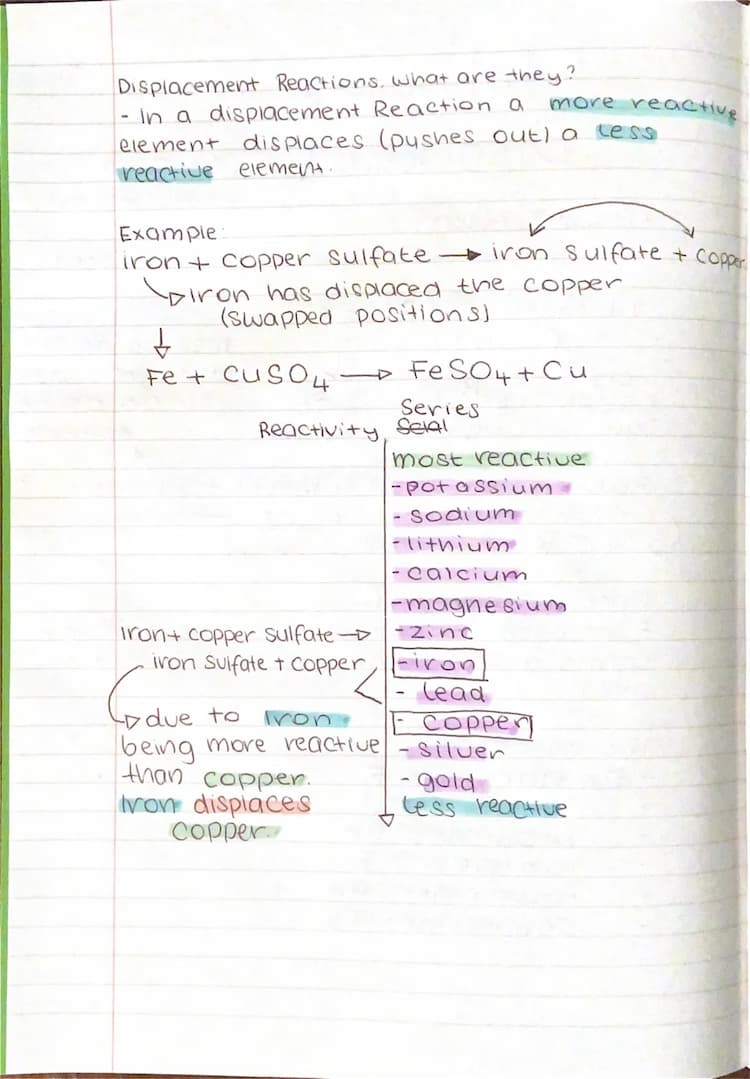 Displacement Reactions. what are they?
- In a displacement Reaction a more reactive
element displaces (pushes out) a less
reactive element.
Example:
iron + copper sulfate → iron sulfate + copper
→ iron has displaced the copper
(swapped positions)
Fe + CuSO4 → FeSO4 + Cu
Series
Reactivity
most reactive
- potassium
- sodium
- lithium
- calcium
- magnesium
- zinc
- iron
- lead
- copper
- silver
- gold
less reactive
Iron + copper sulfate →
iron sulfate + copper
→ due to Iron
being more reactive
than copper.
Iron displaces
copper.